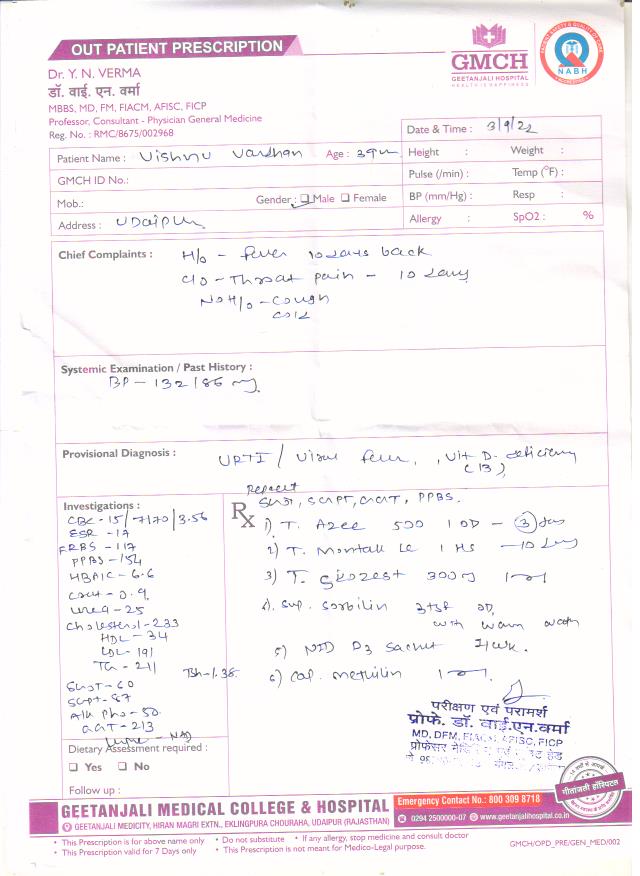 OUT PATIENT PRESCRIPTION
GMCH
GEETANJALI HOSPITAL
HEALTH IS HAPPINESS
NABH
Dr. Y. N. VERMA
डॉ. वाई. एन. वर्मा
MBBS, MD, FM, FIACM, AFISC, FICP
Professor, Consultant - Physician General Medicine
Reg. No. : RMC/8675/002968
Date & Time : 3/9/22
Patient Name : Vishnu Vardhan Age : 39
Height : Weight :
GMCH ID No.:
Pulse (/min) : Temp (°F) :
Mob.: Gender : Male Female
BP (mm/Hg) : Resp :
Address : Udaipur
Allergy : SpO2 : %
Chief Complaints :
H/o - fever 10 days back
C/o - Throat pain - 10 days
No H/o - Cough
cold
Systemic Examination / Past History :
BP - 132/86
Provisional Diagnosis :
URTI / Viral fever, Vit D. deficiency
(13)
Investigations :
CBC - 15/7170/3.56
ESR - 17
FRBS - 117
PPBS - 154
HBAIC - 6.6
Creat - 0.9
Urea - 25
Cholesterol - 233
HDL - 34
LDL - 191
TG - 211
Tsh - 1.38
SGOT - 60
SGPT - 87
Alk Pho - 50
GGT - 213
Urine - NAD
Repeat
SGOT, SGPT, GGT, PPBS.
Rx
1) T. Azee 500 1 OD - 3 days
2) T. Montair LC 1 HS - 10 days
3) T. 300 1
4) Syp. Sorbilin 2tsf OD
with warm water
5) NID D3 Sachet 1/wk.
6) Cap. 1
परीक्षण एवं परामर्श
प्रोफे. डॉ. वाई.एन.वर्मा
MD, DFM, FIACM, AFISC, FICP
प्रोफेसर
Dietary Assessment required :
Yes No
Follow up :
गीतांजली हॉस्पिटल
GEETANJALI MEDICAL COLLEGE & HOSPITAL
GEETANJALI MEDICITY, HIRAN MAGRI EXTN., EKLINGPURA CHOURAHA, UDAIPUR (RAJASTHAN)
Emergency Contact No.: 800 309 8718
0294 2500000-07 www.geetanjalihospital.co.in
• This Prescription is for above name only • Do not substitute • If any allergy, stop medicine and consult doctor
• This Prescription valid for 7 Days only • This Prescription is not meant for Medico-Legal purpose.
GMCH/OPD_PRE/GEN_MED/002